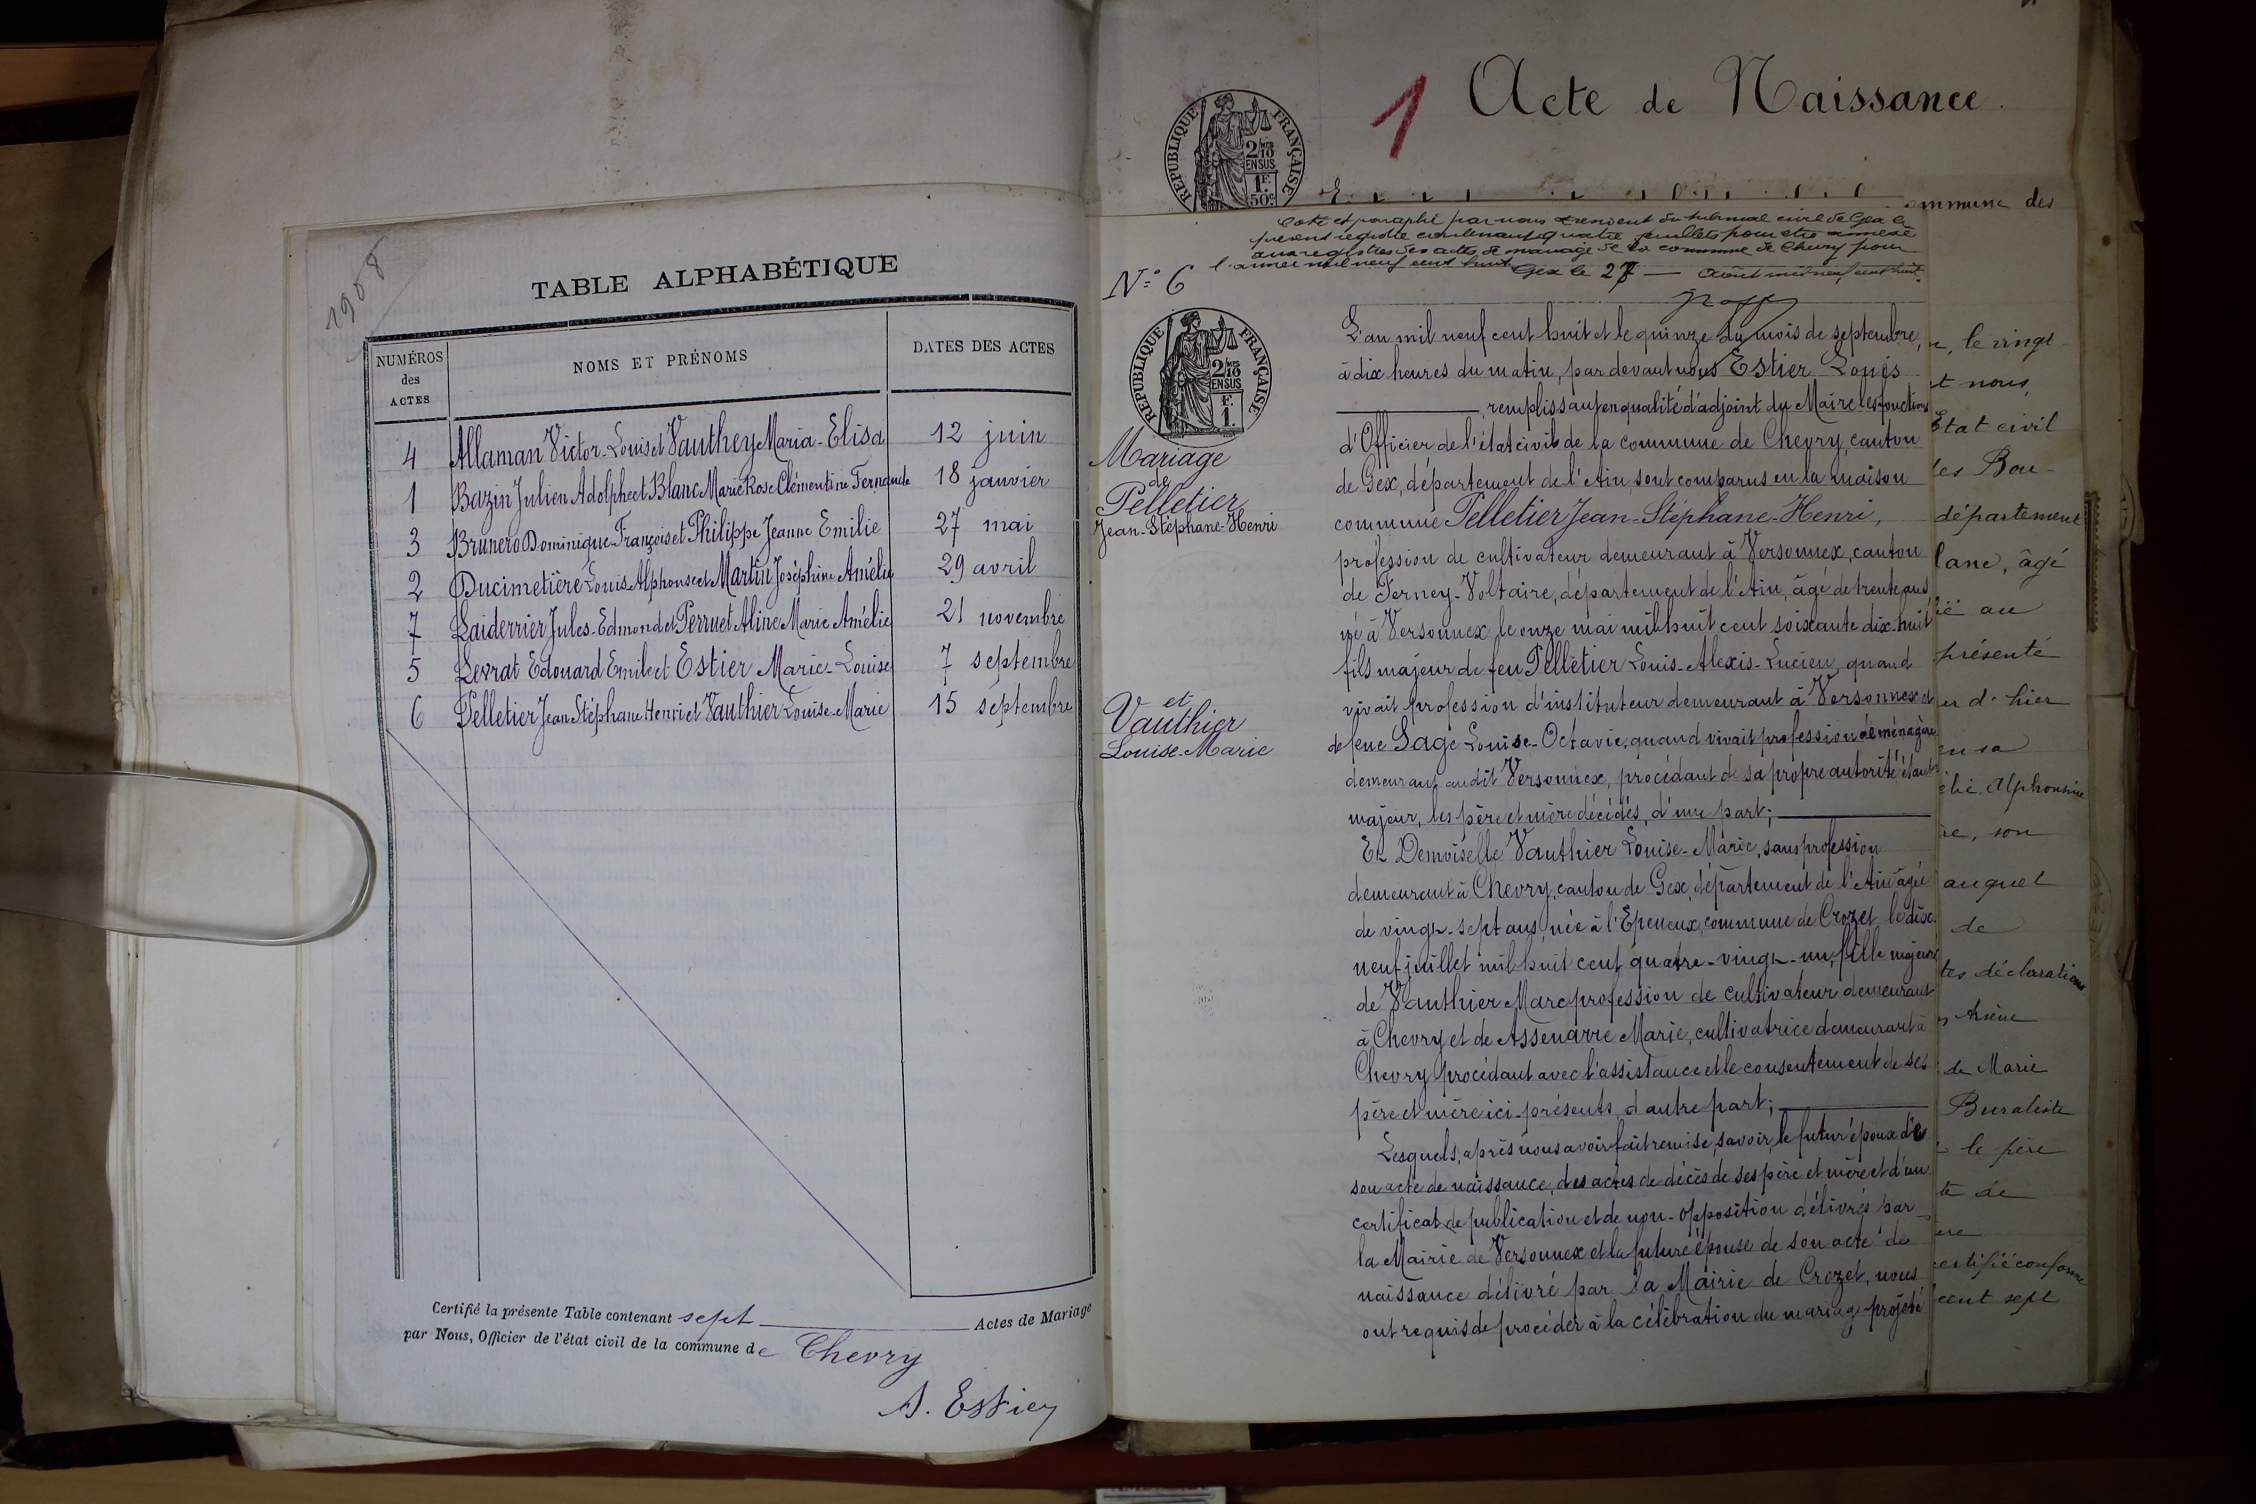 1908
TABLE ALPHABÉTIQUE
NUMÉROS des ACTES
NOMS ET PRÉNOMS
DATES DES ACTES
4 Allaman Victor-Louis et Vauthey Maria-Elisa 12 juin
1 Bazin Julien Adolphe et Blanc Marie Rose Clémentine Fernande 18 janvier
3 Brunero Dominique-François et Philippe Jeanne Emilie 27 mai
2 Ducimetière Louis-Alphonse et Martin Joséphine Amélie 29 avril
7 Laiderrier Jules-Edmond et Perruet Aline Marie Amélie 21 novembre
5 Levrat Edouard Emile et Estier Marie-Louise 7 septembre
6 Pelletier Jean Stéphane Henri et Vauthier Louise-Marie 15 septembre
Certifié la présente Table contenant sept Actes de Mariage
par Nous, Officier de l'état civil de la commune de Chevry
Estier
1 Acte de Naissance.
RÉPUBLIQUE FRANÇAISE
2/10 EN SUS
1F. 50c
commune des
Coté et paraphé par nous président du tribunal civil de Gex le
présent registre contenant quatre feuillets pour être annexé
aux registres des actes de mariage de la commune de Chevry pour
l'année mil neuf cent huit Gex le 27 août mil neuf cent huit.
N° 6
RÉPUBLIQUE FRANÇAISE
2/10 EN SUS
1F.
Mariage
de
Pelletier
Jean-Stéphane-Henri
et
Vauthier
Louise-Marie
L'an mil neuf cent huit et le quinze du mois de septembre,
à dix heures du matin, par devant nous Estier Louis
remplissant en qualité d'adjoint du Maire les fonctions
d'Officier de l'état civil de la commune de Chevry, canton
de Gex, département de l'Ain, sont comparus en la maison
commune Pelletier Jean-Stéphane-Henri,
profession de cultivateur demeurant à Versonnex, canton
de Ferney-Voltaire, département de l'Ain, âgé de trente ans,
né à Versonnex le onze mai mil huit cent soixante dix-huit
fils majeur de feu Pelletier Louis-Alexis-Lucien, quand
vivait profession d'instituteur demeurant à Versonnex et
de feue Sage Louise-Octavie, quand vivait profession de ménagère
demeurant audit Versonnex, procédant de sa propre autorité étant
majeur, les père et mère décédés, d'une part;
Et Demoiselle Vauthier Louise-Marie, sans profession
demeurant à Chevry, canton de Gex, département de l'Ain âgée
de vingt-sept ans, née à l'Epeneux, commune de Crozet le dix
neuf juillet mil huit cent quatre-vingt-un, fille majeure
de Vauthier Marc profession de cultivateur demeurant
à Chevry et de Assenarre Marie, cultivatrice demeurant à
Chevry procédant avec l'assistance et le consentement de ses
père et mère ici présents, d'autre part;
Lesquels, après nous avoir fait remise, savoir, le futur époux de
son acte de naissance, des actes de décès de ses père et mère et d'un
certificat de publication et de non-opposition délivrés par
la Mairie de Versonnex et la future épouse de son acte de
naissance délivré par la Mairie de Crozet, nous
ont requis de procéder à la célébration du mariage projeté
, le vingt
nous
Etat civil
les Bou-
département
lanc, âgé
au
présenté
d'hier
en sa
Alphonsine
son
auquel
de
tes déclarations
Arsène
de Marie
Buraliste
le père
de
certifié conforme
cent sept